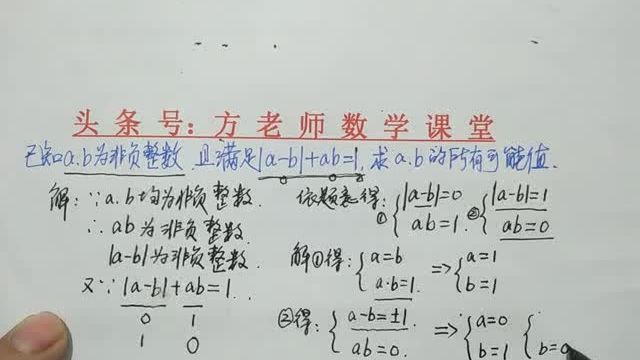 头条号：方老师数学课堂
已知a.b为非负整数，且满足|a-b|+ab=1，求a.b的所有可能值．
解：∵a.b均为非负整数．
∴ab为非负整数．
|a-b|为非负整数．
又∵|a-b|+ab=1．
0 1
1 0
依题意得：①{|a-b|=0 ab=1． ②{|a-b|=1 ab=0
解①得：{a=b a·b=1． =>{a=1 b=1
②得：{a-b=±1 ab=0． =>{a=0 b=1 { b=0